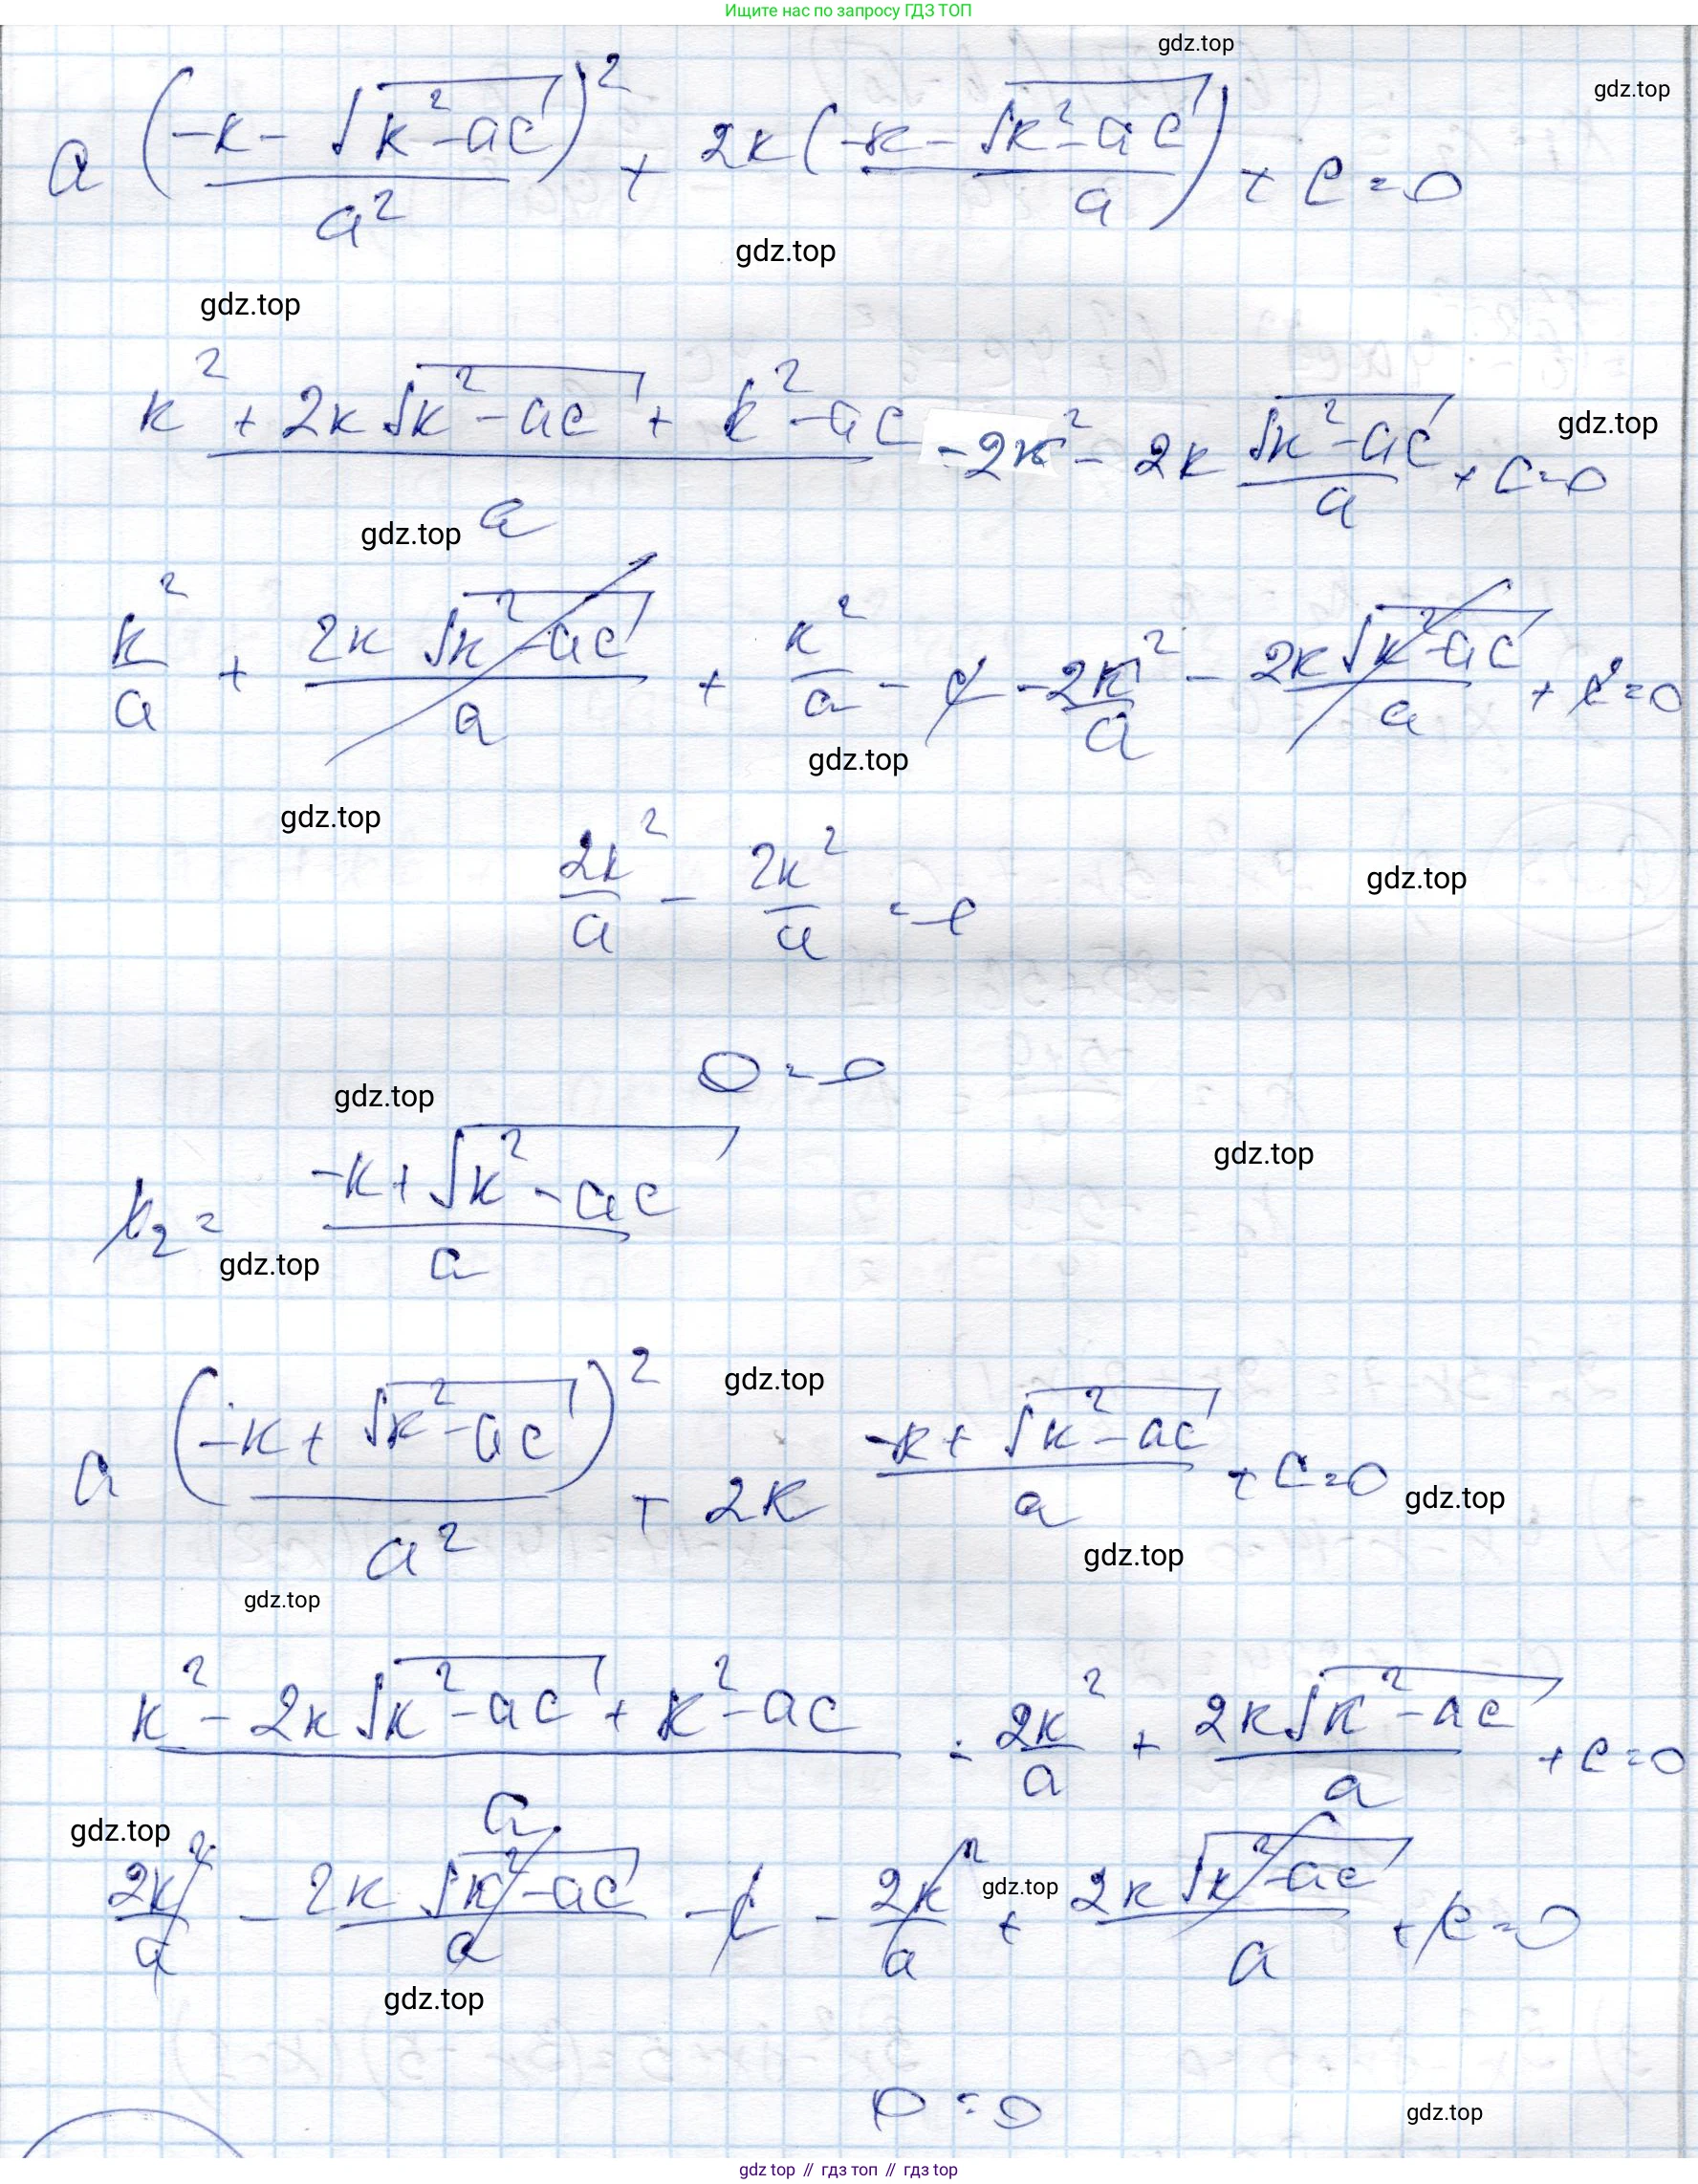 Ищите нас по запросу ГДЗ ТОП
gdz.top
gdz.top
a (-k - √(k² - ac))² / a² + 2k (-k - √(k² - ac)) / a + c = 0
gdz.top
gdz.top
(k² + 2k √(k² - ac) + k² - ac) / a - 2k² - 2k √(k² - ac) / a + c = 0
gdz.top
gdz.top
k² / a + 2k √(k² - ac) / a + k² / a - c - 2k² / a - 2k √(k² - ac) / a + c = 0
gdz.top
gdz.top
2k² / a - 2k² / a = 0
gdz.top
0 = 0
gdz.top
x₂ = (-k + √(k² - ac)) / a
gdz.top
gdz.top
gdz.top
a (-k + √(k² - ac))² / a² + 2k (-k + √(k² - ac)) / a + c = 0
gdz.top
gdz.top
gdz.top
(k² - 2k √(k² - ac) + k² - ac) / a - 2k² / a + 2k √(k² - ac) / a + c = 0
gdz.top
2k² / a - 2k √(k² - ac) / a - c - 2k² / a + 2k √(k² - ac) / a + c = 0
gdz.top
gdz.top
0 = 0
gdz.top
gdz top // гдз топ // гдз top